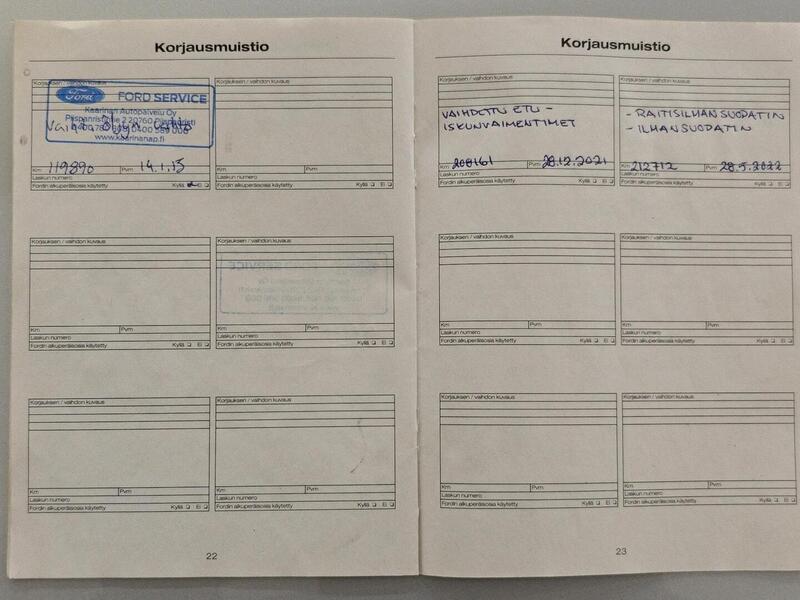 Korjausmuistio
Korjauksen / vaihdon kuvaus
Ford FORD SERVICE
Kaarinan Autopalvelu Oy
20760 Piispanristi
www.kaarinanap.fi
Km 119890 Pvm 14.1.15
Laskun numero
Fordin alkuperäisosia käytetty Kyllä Ei
Korjauksen / vaihdon kuvaus
Km Pvm
Laskun numero
Fordin alkuperäisosia käytetty Kyllä Ei
Korjauksen / vaihdon kuvaus
Km Pvm
Laskun numero
Fordin alkuperäisosia käytetty Kyllä Ei
Korjauksen / vaihdon kuvaus
Km Pvm
Laskun numero
Fordin alkuperäisosia käytetty Kyllä Ei
Korjauksen / vaihdon kuvaus
Km Pvm
Laskun numero
Fordin alkuperäisosia käytetty Kyllä Ei
Korjauksen / vaihdon kuvaus
Km Pvm
Laskun numero
Fordin alkuperäisosia käytetty Kyllä Ei
22
Korjausmuistio
Korjauksen / vaihdon kuvaus
VAIHDETTU ETU-
ISKUNVAIMENTIMET
Km 208161 Pvm 28.12.2021
Laskun numero
Fordin alkuperäisosia käytetty Kyllä Ei
Korjauksen / vaihdon kuvaus
- RAITISILMANSUODATIN
- ILMANSUODATIN
Km 212712 Pvm 28.5.2022
Laskun numero
Fordin alkuperäisosia käytetty Kyllä Ei
Korjauksen / vaihdon kuvaus
Km Pvm
Laskun numero
Fordin alkuperäisosia käytetty Kyllä Ei
Korjauksen / vaihdon kuvaus
Km Pvm
Laskun numero
Fordin alkuperäisosia käytetty Kyllä Ei
Korjauksen / vaihdon kuvaus
Km Pvm
Laskun numero
Fordin alkuperäisosia käytetty Kyllä Ei
Korjauksen / vaihdon kuvaus
Km Pvm
Laskun numero
Fordin alkuperäisosia käytetty Kyllä Ei
23